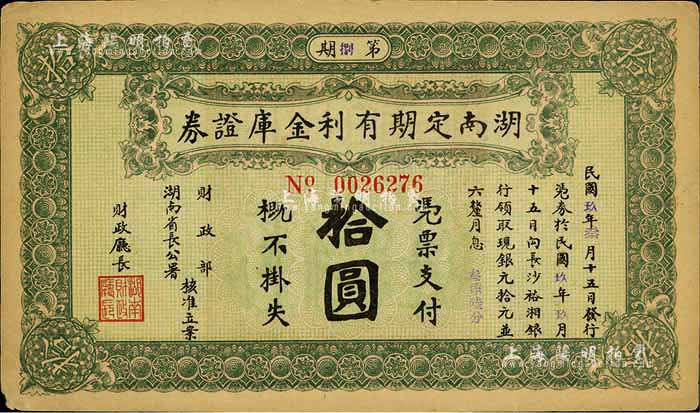 第捌期
湖南定期有利金庫證券
Nº 0026276
民國玖年 月十五日發行
憑券於民國玖年玖月
十五日向長沙裕湘銀
行領取現銀元拾元並
六釐月息
憑票支付
拾圓
概不掛失
財政部
湖南省長公署
核准立案
財政廳長
湖南財政廳長
拾
拾
拾
拾
上海陽明拍賣
上海陽明拍賣
上海陽明拍賣